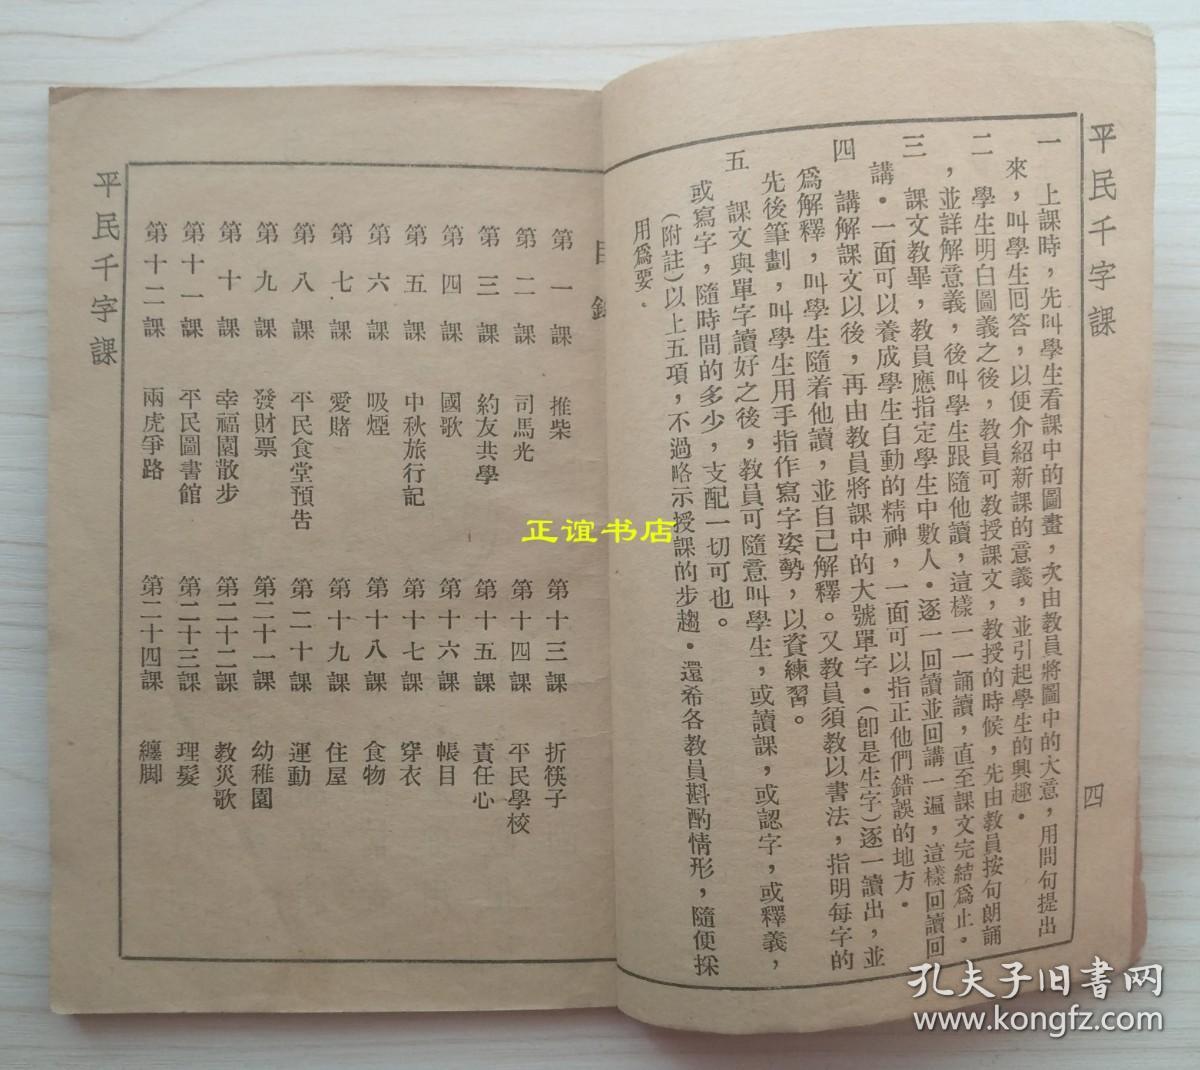 平民千字課
四
一　上課時，先叫學生看課中的圖畫，次由教員將圖中的大意，用問句提出
來，叫學生回答，以便介紹新課的意義，並引起學生的興趣．
二　學生明白圖義之後，教員可教授課文，教授的時候，先由教員按句朗誦
，並詳解意義，後叫學生跟隨他讀，這樣一一誦讀，直至課文完結爲止。
三　課文教畢，教員應指定學生中數人．逐一回讀並回講一遍，這樣回讀回
講．一面可以養成學生自動的精神，一面可以指正他們錯誤的地方．
四　講解課文以後，再由教員將課中的大號單字．(卽是生字)逐一讀出，並
爲解釋，叫學生隨着他讀，並自己解釋。又教員須教以書法，指明每字的
先後筆劃，叫學生用手指作寫字姿勢，以資練習。
五　課文與單字讀好之後，教員可隨意叫學生，或讀課，或認字，或釋義，
或寫字，隨時間的多少，支配一切可也。
(附註)以上五項，不過略示授課的步趨．還希各教員斟酌情形，隨便採
用爲要．
目錄
第一課　推柴
第二課　司馬光
第三課　約友共學
第四課　國歌
第五課　中秋旅行記
第六課　吸煙
第七課　愛賭
第八課　平民食堂預告
第九課　發財票
第十課　幸福園散步
第十一課　平民圖書館
第十二課　兩虎爭路
第十三課　折筷子
第十四課　平民學校
第十五課　責任心
第十六課　帳目
第十七課　穿衣
第十八課　食物
第十九課　住屋
第二十課　運動
第二十一課　幼稚園
第二十二課　教災歌
第二十三課　理髮
第二十四課　纏脚
平民千字課
正谊书店
孔夫子旧书网
www.kongfz.com